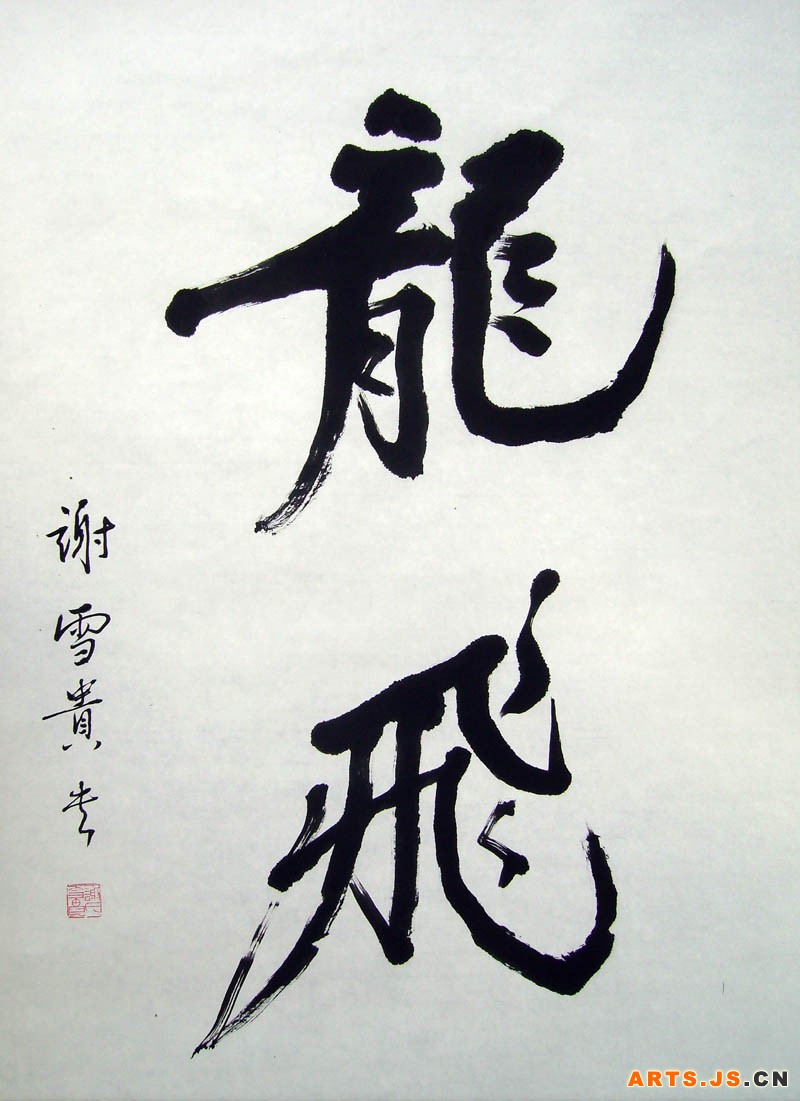 龍飛
謝雪貴書
ARTS.JS.CN